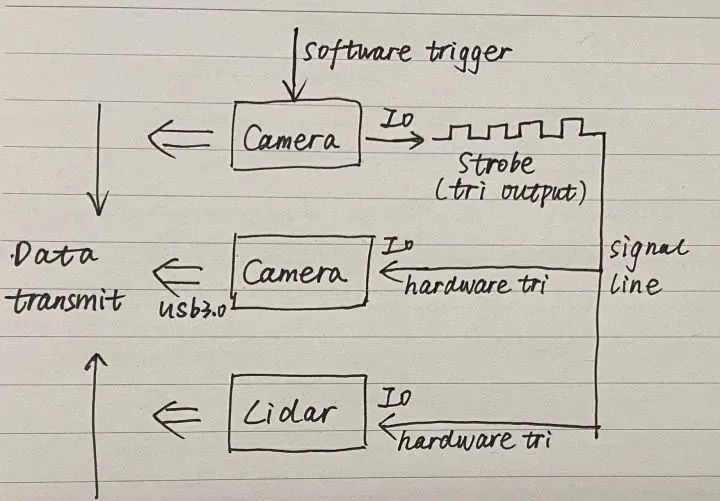 software trigger
Camera
IO
Strobe
(tri output)
Data
transmit
Camera
usb3.0
IO
hardware tri
signal
line
Lidar
IO
hardware tri